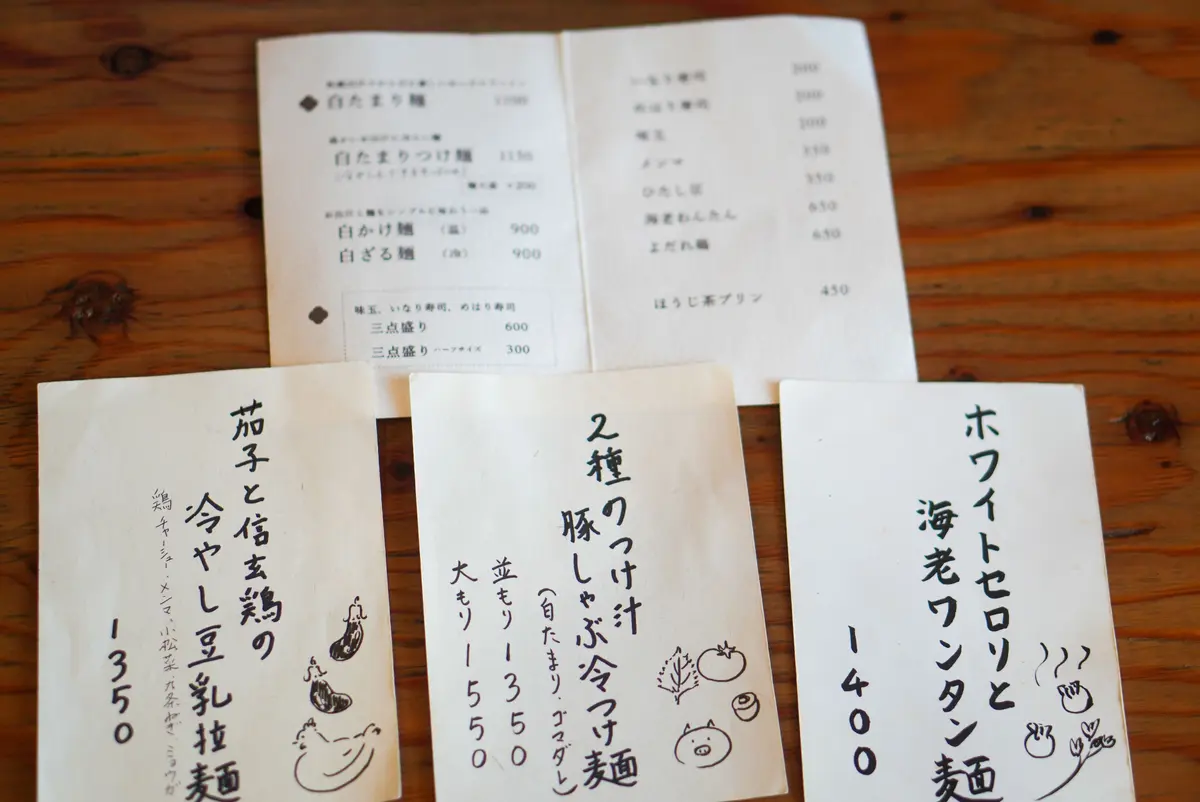 白たまり麺
白たまりつけ麺 1150
麺大盛 ¥200
お出汁と麺をシンプルに味わう一品
白かけ麺 （温） 900
白ざる麺 （冷） 900
味玉、いなり寿司、めはり寿司
三点盛り 600
三点盛り ハーフサイズ 300
いなり寿司
めはり寿司 200
味玉 200
メンマ 350
ひたし豆 350
海老わんたん 650
よだれ鶏 650
ほうじ茶プリン 450
茄子と信玄鶏の
冷やし豆乳拉麺
鶏チャーシュー・メンマ、小松菜・九条ねぎ・ミョウガ
1350
2種のつけ汁
豚しゃぶ冷つけ麺
（白たまり・ゴマダレ）
並もり1350
大もり1550
ホワイトセロリと
海老ワンタン麺
1400